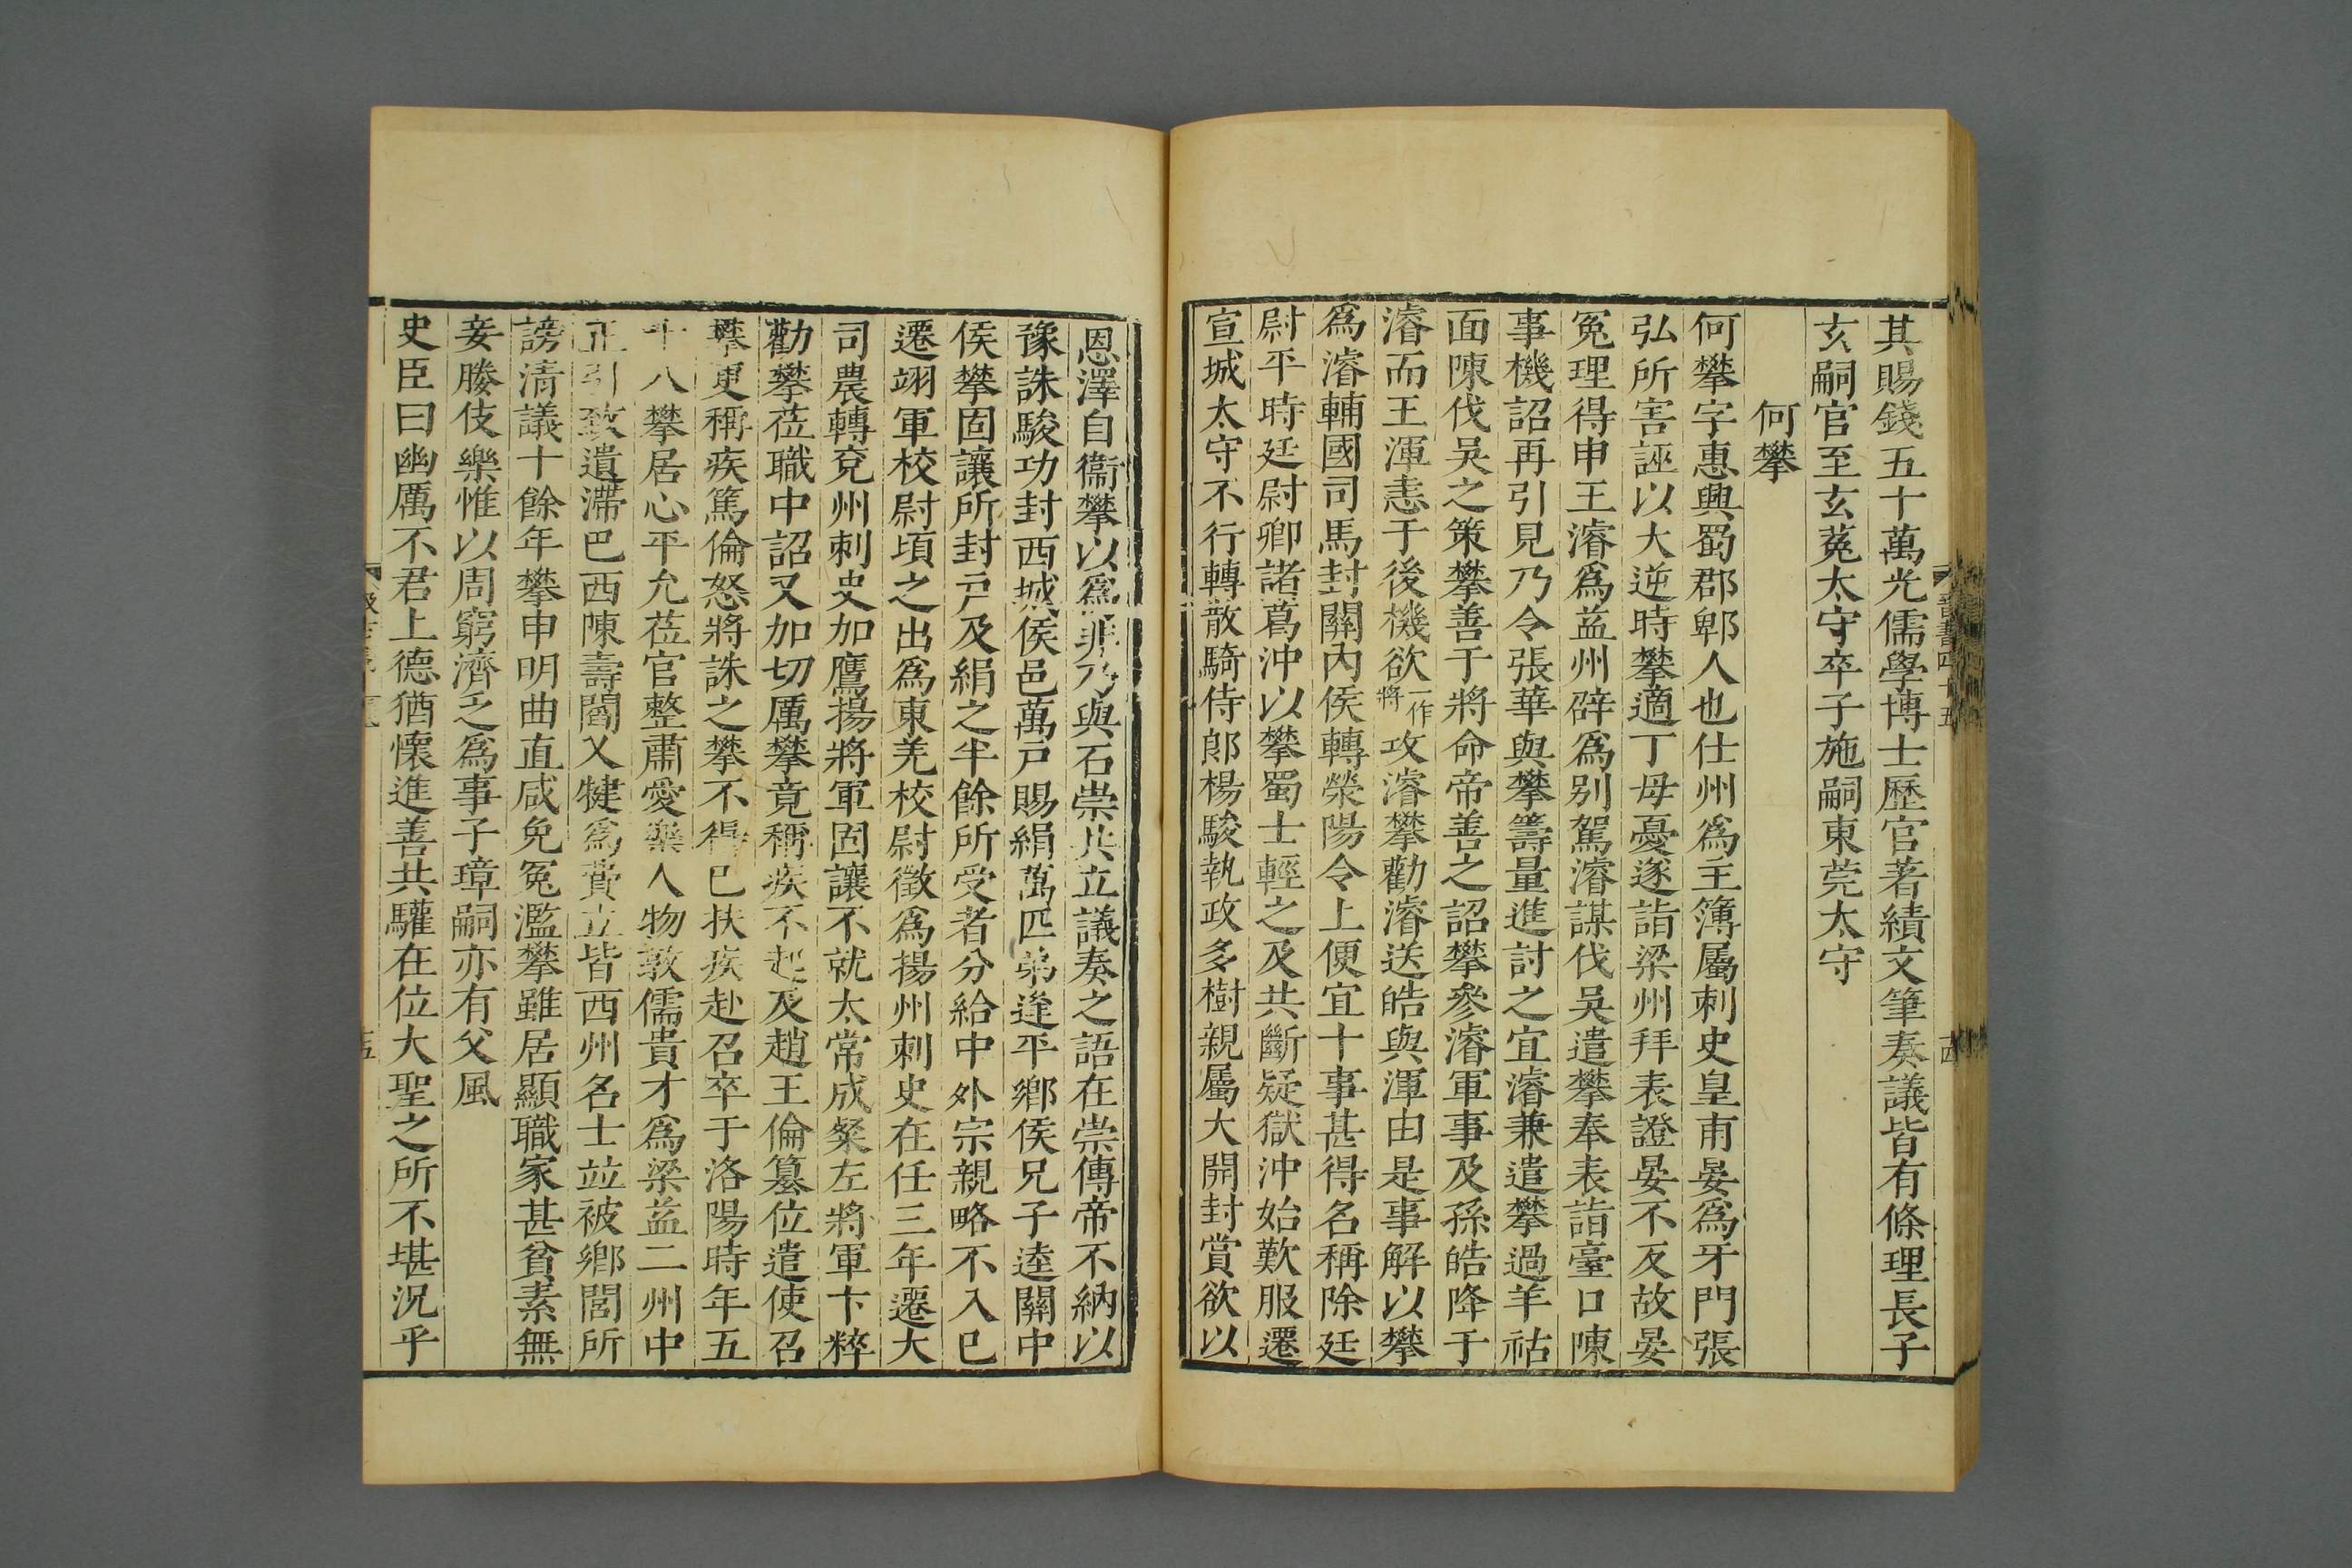 其賜錢五十萬光儒學博士歷官著績文筆奏議皆有條理長子
玄嗣官至玄菟太守卒子施嗣東莞太守
何攀
何攀字惠興蜀郡郫人也仕州爲主簿屬刺史皇甫晏爲牙門張
弘所害誣以大逆時攀適丁母憂遂詣梁州拜表證晏不反故晏
冤理得申王濬爲益州辟爲別駕濬謀伐吳遣攀奉表詣臺口陳
事機詔再引見乃令張華與攀籌量進討之宜濬兼遣攀過羊祜
面陳伐吳之策攀善于將命帝善之詔攀參濬軍事及孫皓降于
濬而王渾恚于後機欲一作將攻濬攀勸濬送皓與渾由是事解以攀
爲濬輔國司馬封關內侯轉滎陽令上便宜十事甚得名稱除廷
尉平時廷尉卿諸葛沖以攀蜀士輕之及共斷疑獄沖始歎服遷
宣城太守不行轉散騎侍郎楊駿執政多樹親屬大開封賞欲以
恩澤自衞攀以爲非乃與石崇共立議奏之語在崇傳帝不納以
豫誅駿功封西城侯邑萬戶賜絹萬匹弟逢平鄉侯兄子逵關中
侯攀固讓所封戶及絹之半餘所受者分給中外宗親略不入已
遷翊軍校尉頃之出爲東羌校尉徵爲揚州刺史在任三年遷大
司農轉兗州刺史加鷹揚將軍固讓不就太常成粲左將軍卞粹
勸攀莅職中詔又加切厲攀竟稱疾不起及趙王倫篡位遣使召
攀更稱疾篤倫怒將誅之攀不得已扶疾赴召卒于洛陽時年五
十八攀居心平允莅官整肅愛樂人物敦儒貴才爲梁益二州中
正引致遺滯巴西陳壽閻乂犍爲費立皆西州名士竝被鄉閭所
謗清議十餘年攀申明曲直咸免冤濫攀雖居顯職家甚貧素無
妾媵伎樂惟以周窮濟乏爲事子璋嗣亦有父風
史臣曰幽厲不君上德猶懷進善共驩在位大聖之所不堪況乎
晉書四十五
十四